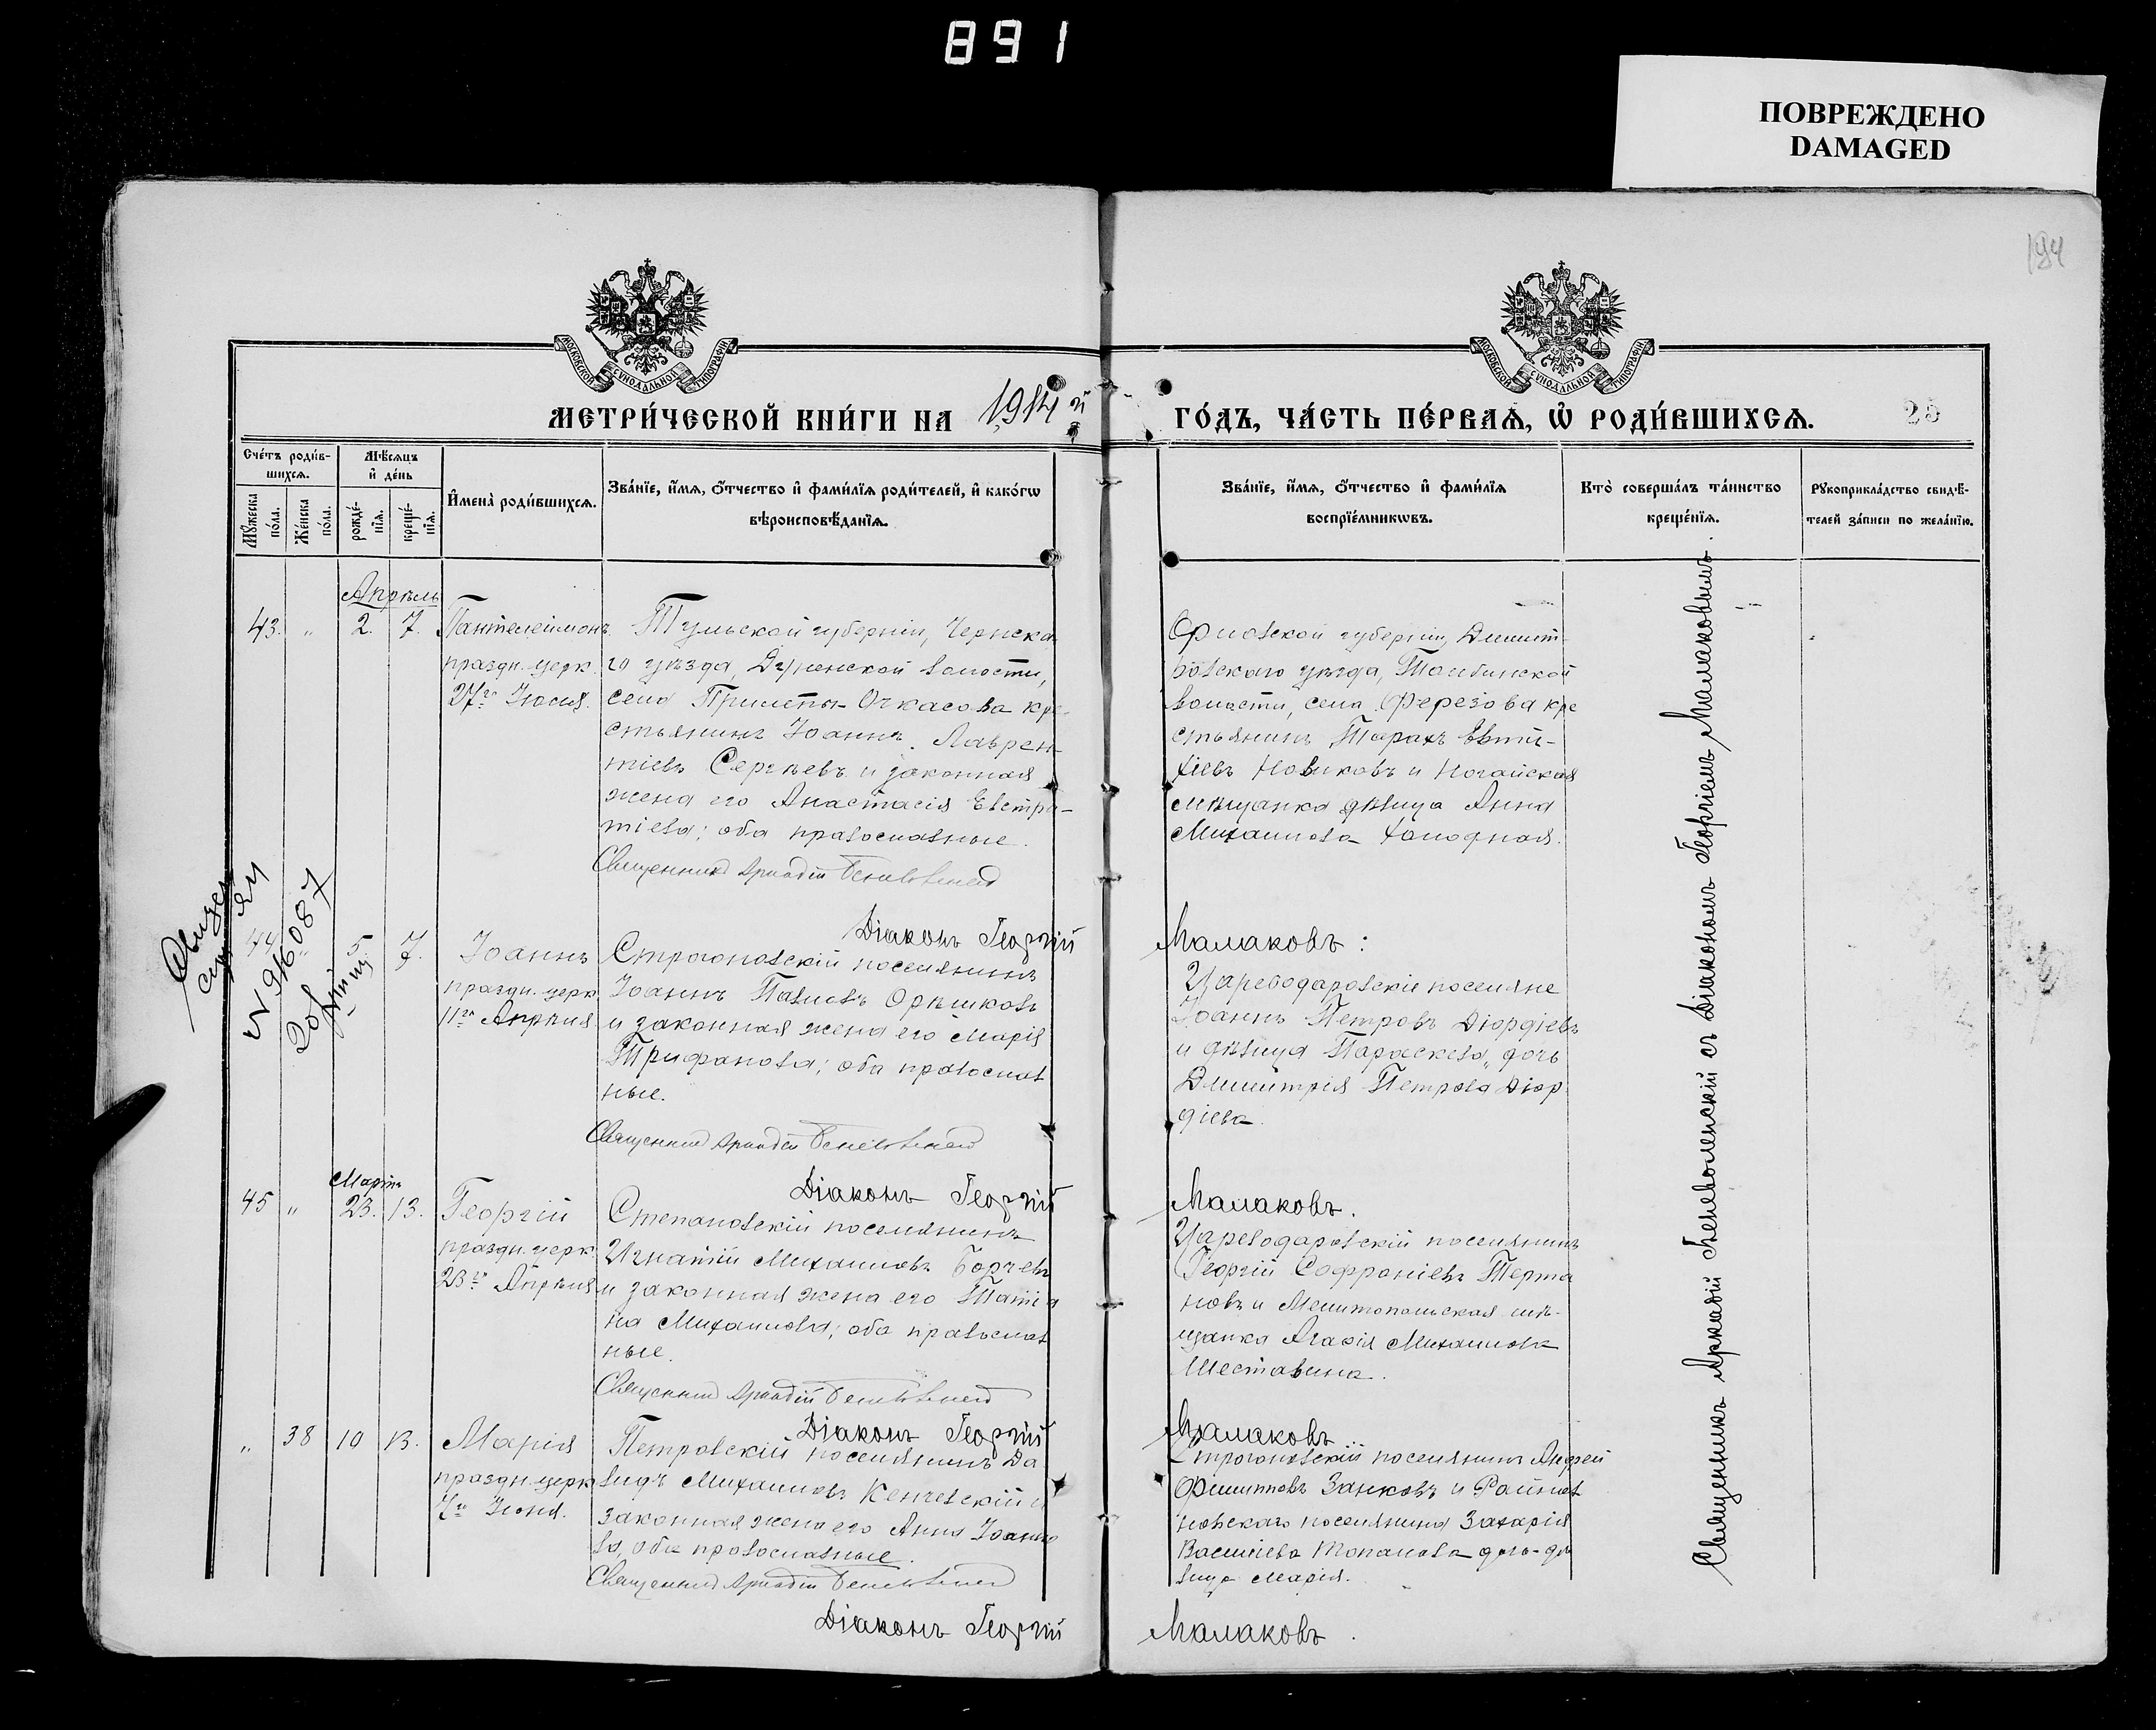 891
ПОВРЕЖДЕНО
DAMAGED
194
МОСКОВСКОЙ СУНОДАЛЬНОЙ ТИПОГРАФІИ
МОСКОВСКОЙ СУНОДАЛЬНОЙ ТИПОГРАФІИ
МЕТРИ́ЧЕСКОЙ КНИ́ГИ НА 1914 й ГО́ДЪ, ЧА́СТЬ ПЕ́РВАѦ, Ѡ҆ РОДИ́ВШИХСѦ. 25
Сче́тъ роди́в-
шихсѧ.
Мꙋ́жеска
по́ла.
Же́нска
по́ла.
Мѣ́сѧцъ
и҆ де́нь
рожде́-
нїѧ.
креще́-
нїѧ.
И҆мена̀ роди́вшихсѧ.
Зва́нїе, и҆́мѧ, ѻ҆́тчество и҆ фами́лїѧ роди́телей, и҆ како́гѡ
вѣроисповѣ́данїѧ.
Зва́нїе, и҆́мѧ, ѻ҆́тчество и҆ фами́лїѧ
воспрїе́мникѡвъ.
Кто̀ соверша́лъ та́инство
креще́нїѧ.
Рꙋкоприкла́дство свидѣ́-
телей за́писи по жела́нїю.
Апрѣль
43. " 2. 7. Пантелеимонъ
праздн. церк.
27го Іюля.
Тульской губерніи, Чернска
го уѣзда, волости,
села Очкасова кре
стьянинъ Іоаннъ Лаврен-
тіевъ Сергѣевъ и законная
жена его Анастасія Евстра-
тіева; оба православные.
Священникъ Аркадій Беневоленскій
Діаконъ Георгій Малаковъ:
Орловской губерніи, Димит-
ровскаго уѣзда,
волости, села Ферезова кре
стьянинъ Тарахъ Евти-
хіевъ Новиковъ и Ногайская
мѣщанка дѣвица Анна
Михаилова Холодная.
44 " 5 7. Іоаннъ
праздн. церк
11го Апрѣля
Строгоновскій поселянинъ
Іоаннъ Павловъ Орѣшковъ
и законная жена его Марія
Трифанова; оба православ
ные.
Священникъ Аркадій Беневоленскій
Діаконъ Георгій Малаковъ.
Цареводаровскіе поселяне
Іоаннъ Петровъ Діордіевъ
и дѣвица Параскева, дочь
Димитрія Петрова Діор
діева.
N 916087
Мартъ
45 " 23. 13. Георгій
праздн. церк.
23го Апрѣля
Степановскій поселянинъ
Игнатій Михаиловъ Борчевъ
и законная жена его Татіа
на Михаилова; оба православ
ные.
Священникъ Аркадій Беневоленскій
Діаконъ Георгій Малаковъ
Цареводаровскій поселянинъ
Георгій Софроніевъ Терта
новъ и Мелитопольская мѣ-
щанка Агафія Михаилова
Шеставина.
" 38 10 13. Марія
праздн. церк
7го Іюня.
Петровскій поселянинъ Да
видъ Михаиловъ Кенчевскій и
законная жена его Анна Іоанно
ва, оба православные.
Священникъ Аркадій Беневоленскій
Діаконъ Георгій Малаковъ.
Строгоновскій поселянинъ Андрей
Филипповъ Занковъ и Райнов
новскаго поселянина Захарія
Василіева Топалова дочь-дѣ
вица Марія.
Священникъ Аркадій Беневоленскій съ Діакономъ Георгіемъ Малаковымъ.